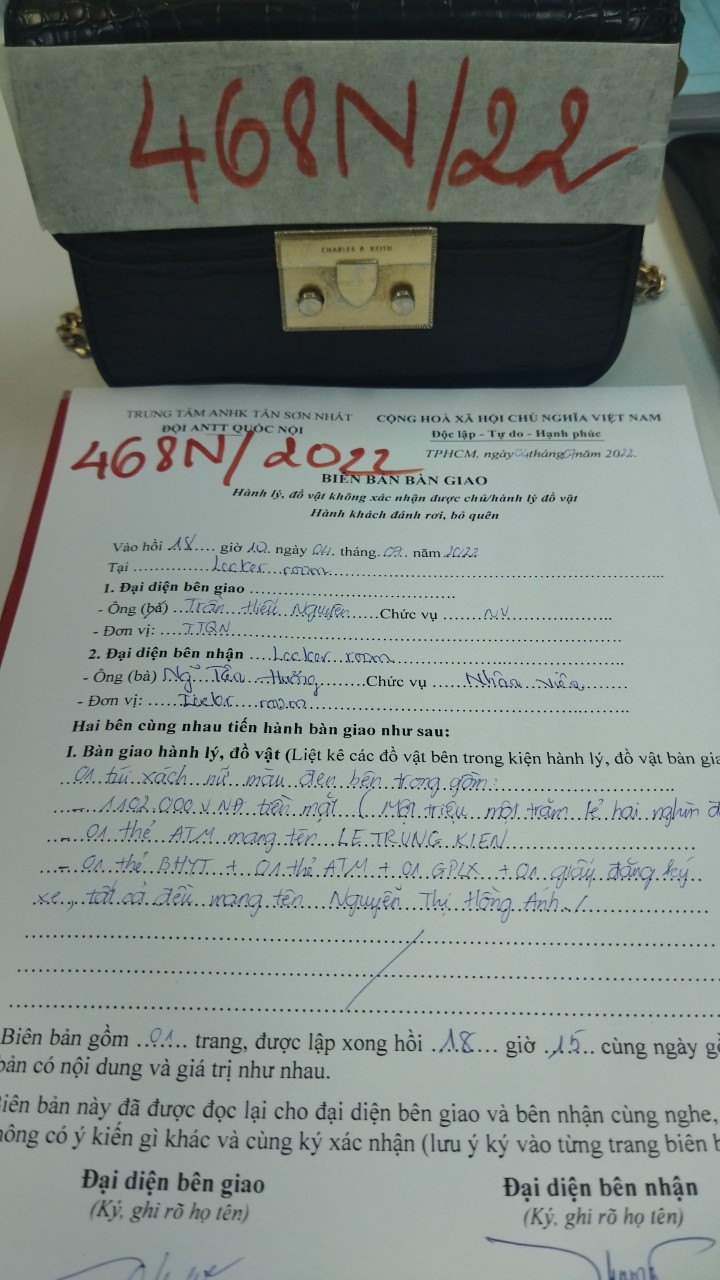 468N/22
CHARLES & KEITH
TRUNG TÂM ANHK TÂN SƠN NHẤT
CỘNG HOÀ XÃ HỘI CHỦ NGHĨA VIỆT NAM
ĐỘI ANTT QUỐC NỘI
Độc lập - Tự do - Hạnh phúc
468N/2022
TPHCM, ngày 04 tháng 09 năm 2022.
BIÊN BẢN BÀN GIAO
Hành lý, đồ vật không xác nhận được chủ/hành lý đồ vật
Hành khách đánh rơi, bỏ quên
Vào hồi .18.... giờ 10.. ngày 04.. tháng. 09.. năm 2022
Tại ............Locker room................
1. Đại diện bên giao ................
- Ông (bà) ..Trần Hiếu Nguyên.....Chức vụ ......NV................
- Đơn vị: ....TTQN................
2. Đại diện bên nhận ....Locker room................
- Ông (bà) Ng~ Tấn Hưởng......Chức vụ ....Nhân viên......
- Đơn vị: ....room................
Hai bên cùng nhau tiến hành bàn giao như sau:
I. Bàn giao hành lý, đồ vật (Liệt kê các đồ vật bên trong kiện hành lý, đồ vật bàn gia
01 túi xách nữ màu đen bên trong gồm:
- 1102.000 VNĐ tiền mặt (Một triệu một trăm lẻ hai nghìn đ
- 01 thẻ ATM mang tên LE TRUNG KIEN
- 01 thẻ BHYT + 01 thẻ ATM + 01 GPLX + 01 giấy đăng ký
xe, tất cả đều mang tên Nguyễn Thị Hồng Ánh./
Biên bản gồm ...01... trang, được lập xong hồi ..18.... giờ .15... cùng ngày g
bản có nội dung và giá trị như nhau.
Biên bản này đã được đọc lại cho đại diện bên giao và bên nhận cùng nghe,
hông có ý kiến gì khác và cùng ký xác nhận (lưu ý ký vào từng trang biên b
Đại diện bên giao
Đại diện bên nhận
(Ký, ghi rõ họ tên)
(Ký, ghi rõ họ tên)